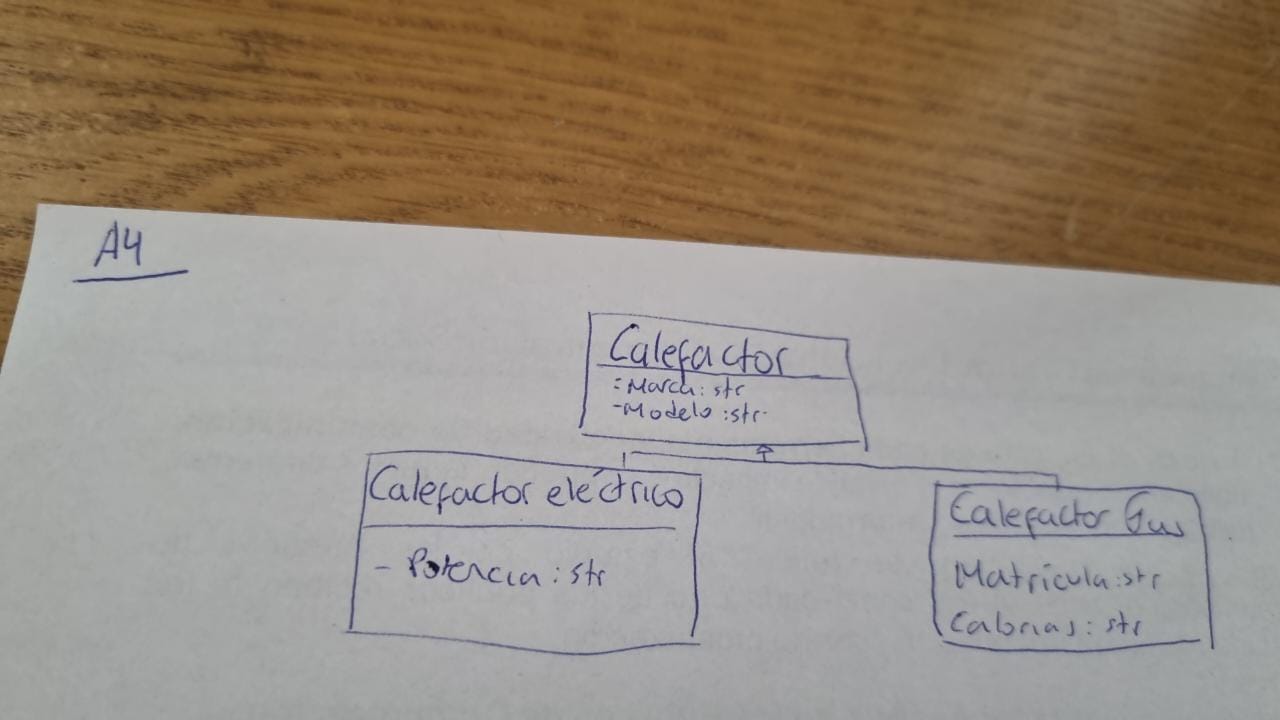 A4
Calefactor
- Marca: str
- Modelo: str
Calefactor eléctrico
- Potencia: str
Calefactor Gas
Matrícula: str
Calorias: str